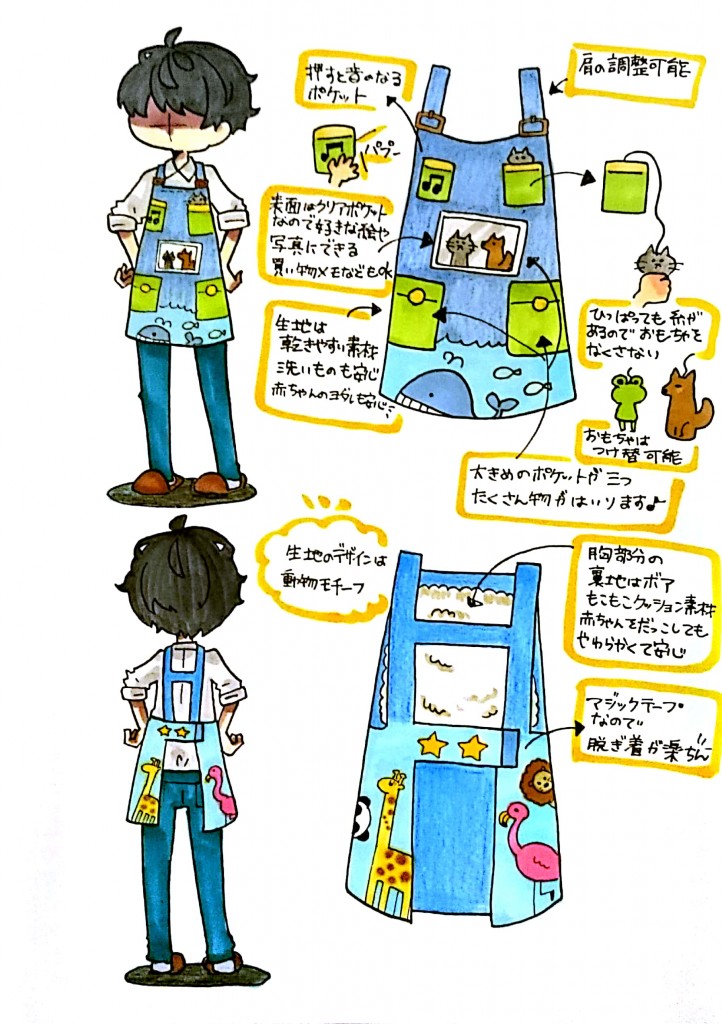 押すと音のなる
ポケット
パプー
肩の調整可能
表面はクリアポケット
なので好きな絵や
写真にできる
買い物メモなどもOK
生地は
乾きやすい素材
洗いものも安心
赤ちゃんのヨダレも安心
ひっぱっても糸が
あるのでおもちゃを
なくさない
おもちゃは
つけ替可能
大きめのポケットが三つ
たくさん物がはいります♪
生地のデザインは
動物モチーフ
胸部分の
裏地はボア
もこもこクッション素材
赤ちゃんをだっこしても
やわらかくて安心
マジックテープ
なので
脱ぎ着が楽ちん